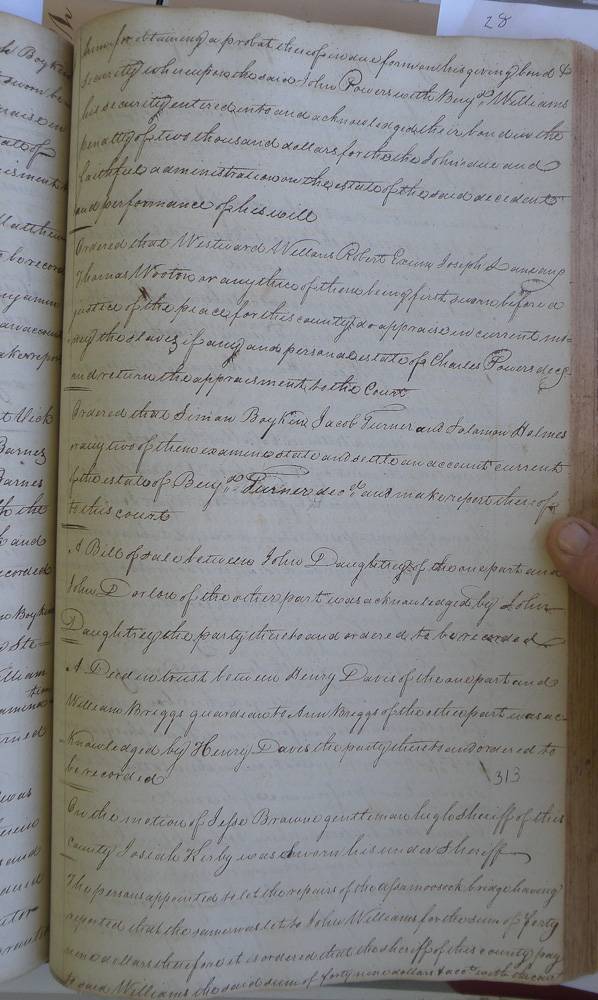 28
him for obtaining a probat thereof in due form on his giving bond &
security whereupon the said John Powers with Benj.ª Williams
his security entered into and acknowledged their bond in the
penalty of two thousand dollars for the the Johns due and
faithful administration on the estate of the said decedent
and performance of his will
Ordered that Westward Williams Robert Joseph Lane any
Thomas Wooton or any three of them being first sworn before a
justice of the peace for this county do appraise in current mo=
ney the slaves if any and personal estate of Charles Powers decd
and return the appraisment to the Court
Ordered that Simon Boykin Jacob Turner and Solomon Holmes
or any two of them examine state and settle an account current
of the estate of Benj.ª Turner dec.d and make report thereof
to this court
A Bill of sale between John Daughtrey of the one part and
John Darlow of the other part was acknowledged by John
Daughtrey the party thereto and ordered to be recorded
A Deed in trust between Henry Davis of the one part and
William Briggs guardian to Ann Briggs of the other part was ac=
knowledged by Henry Davis the party thereto and ordered to
be recorded
313
On the motion of Jesse Browne gentleman high sheriff of this
county Josiah Kirby was sworn his under Sheriff
The persons appointed to let the repairs of the Assamoosock bridge having
reported that the same was let to John Williams for the sum of forty
nine dollars therefore it is ordered that the sheriff of this county pay
to said Williams the said sum of forty nine dollars & acct with the